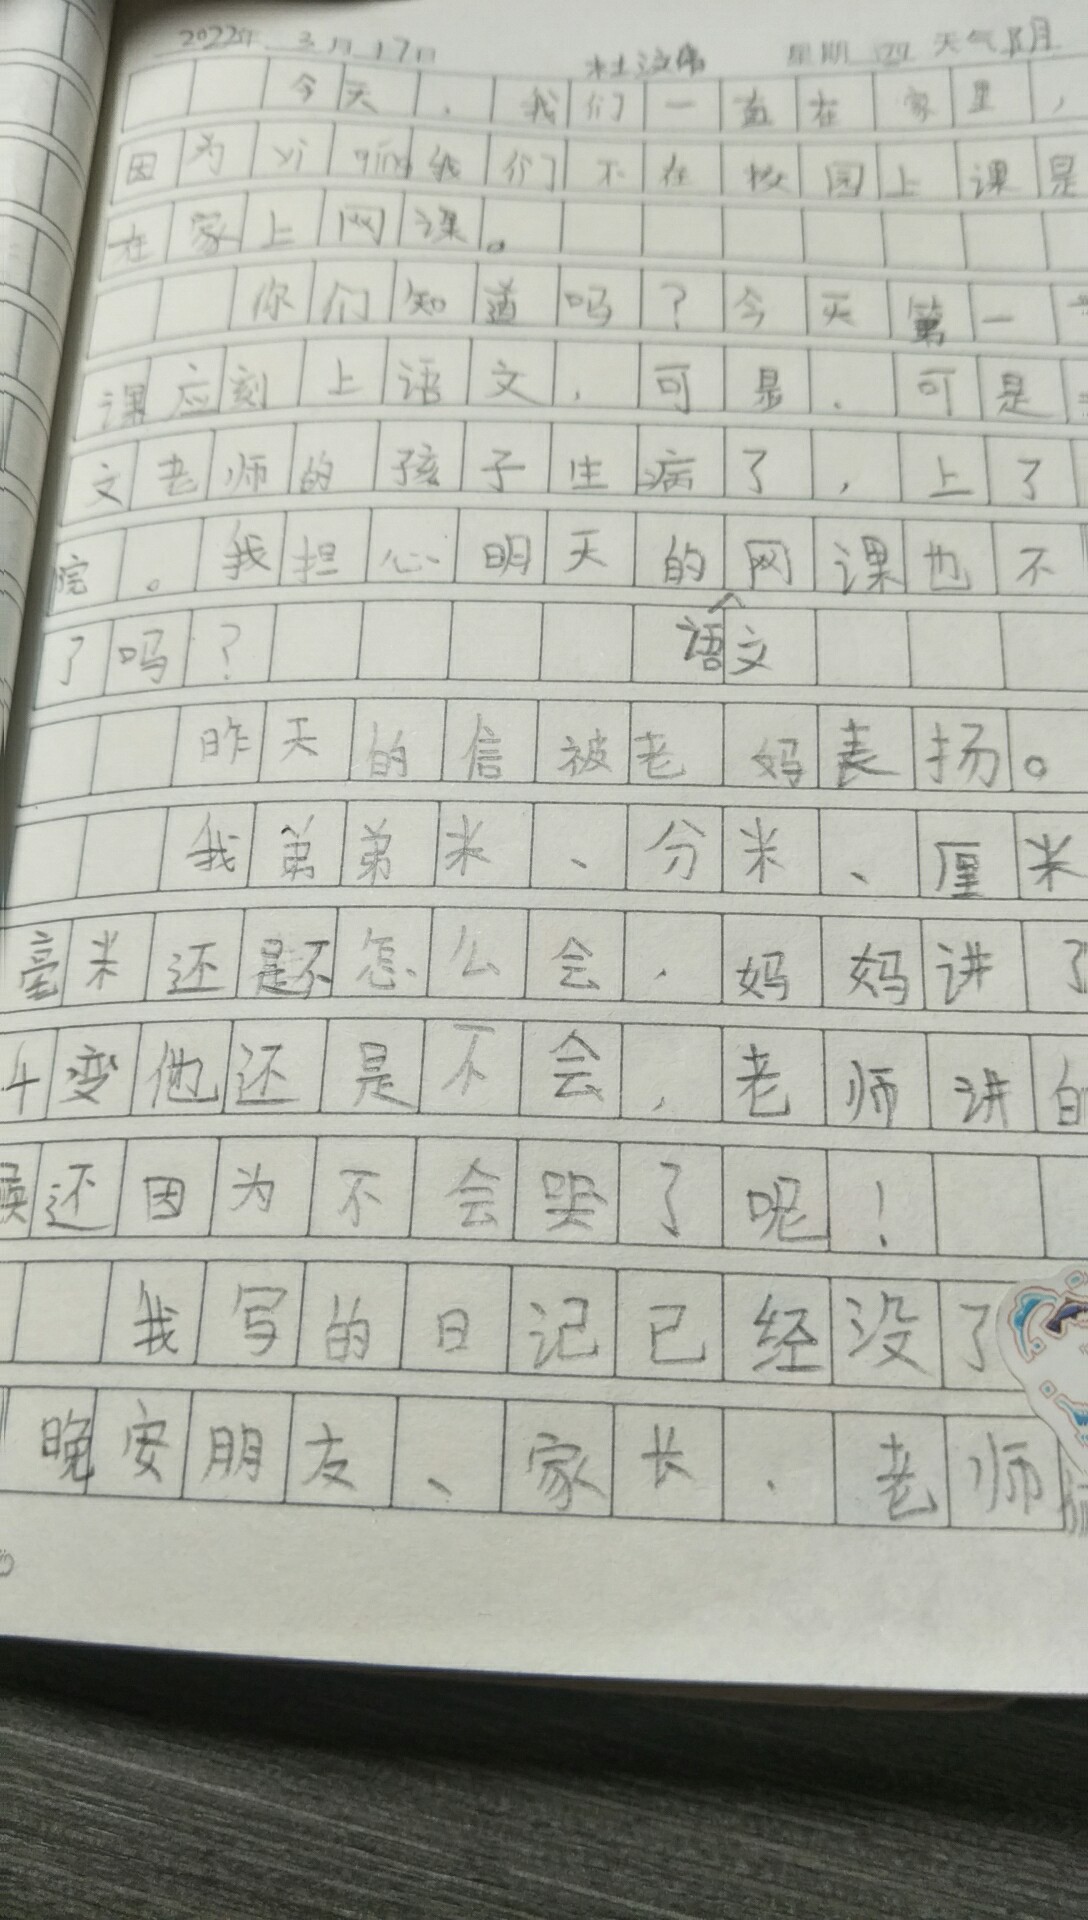 2022年 3月17日 杜 星期四 天气阴
今天，我们一直在家里，
因为yi qing我们不在校园上课是
在家上网课。
你们知道吗？今天第一
课应刻上语文，可是，可是
文老师的孩子生病了，上了
院。我担心明天的网课也不
语文
了吗？
昨天的信被老妈表扬。
我弟弟米、分米、厘米
毫米还是不怎么会，妈妈讲了
变他还是不会，老师讲的
候还因为不会哭了呢！
我写的日记已经没了
晚安朋友、家长、老师